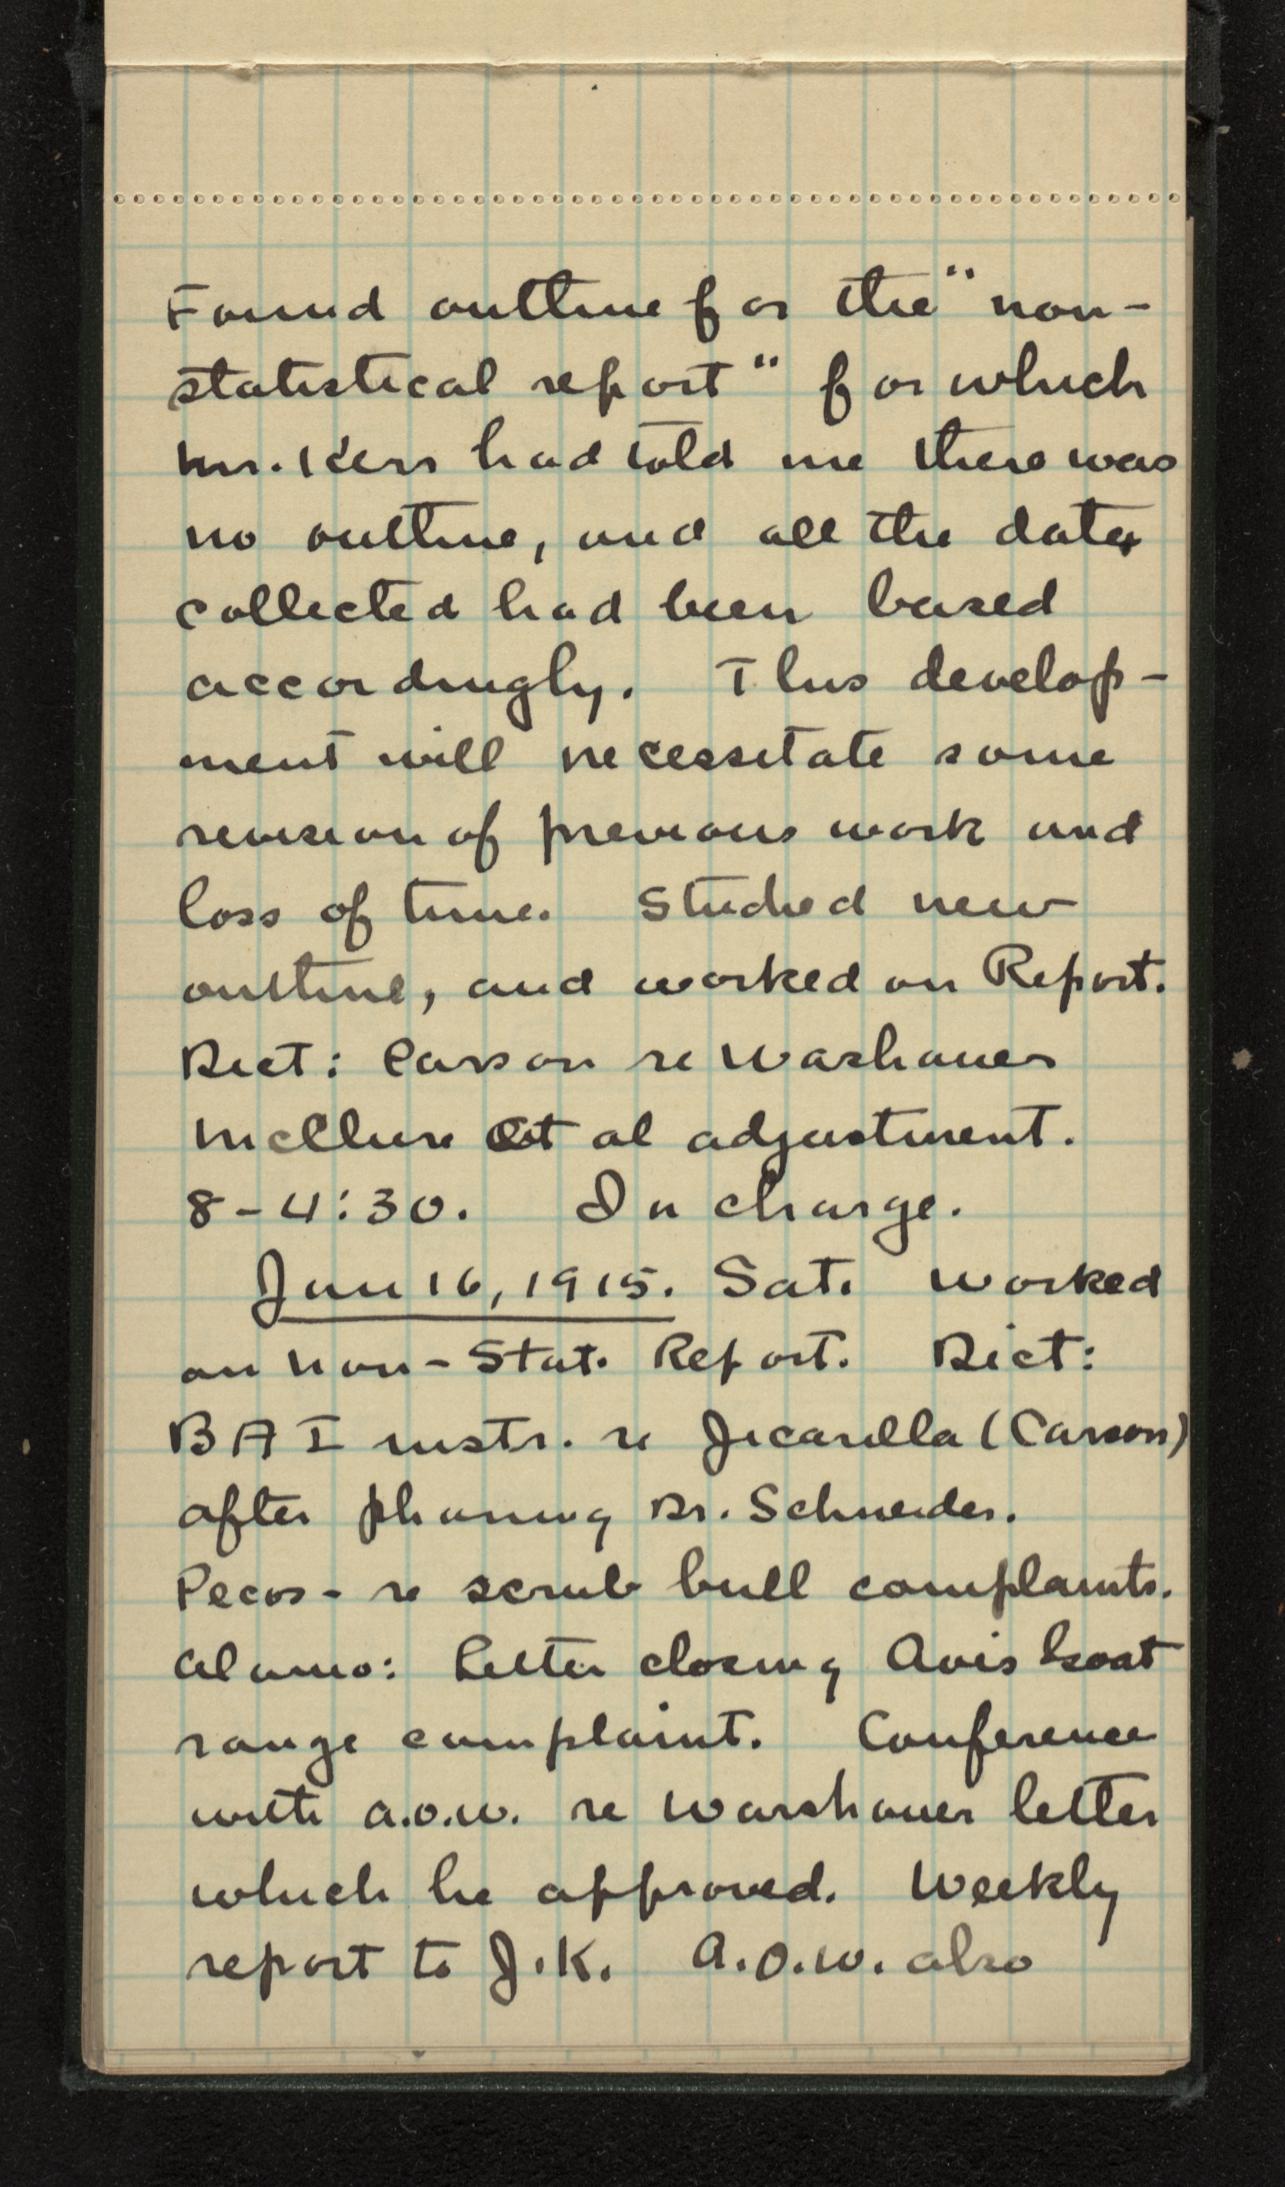 Found outline for the "non-
statistical report" for which
Mr. Kerr had told me there was
no outline, and all the data
collected had been based
accordingly. This develop-
ment will necessitate some
revision of previous work and
loss of time. Studied new
outline, and worked on Report.
Dict: Carson re Warshauer
McClure et al adjustment.
8-4:30. In charge.
Jan 16, 1915. Sat. Worked
on Non-Stat. Report. Dict:
BAI instr. re Jicarilla (Carson)
after phoning Dr. Schneider.
Pecos - re scrub bull complaints.
Alamo: Letter closing Avis Goat
range complaint. Conference
with A.O.W. re Warshauer letter
which he approved. Weekly
report to J.K. A.O.W. also